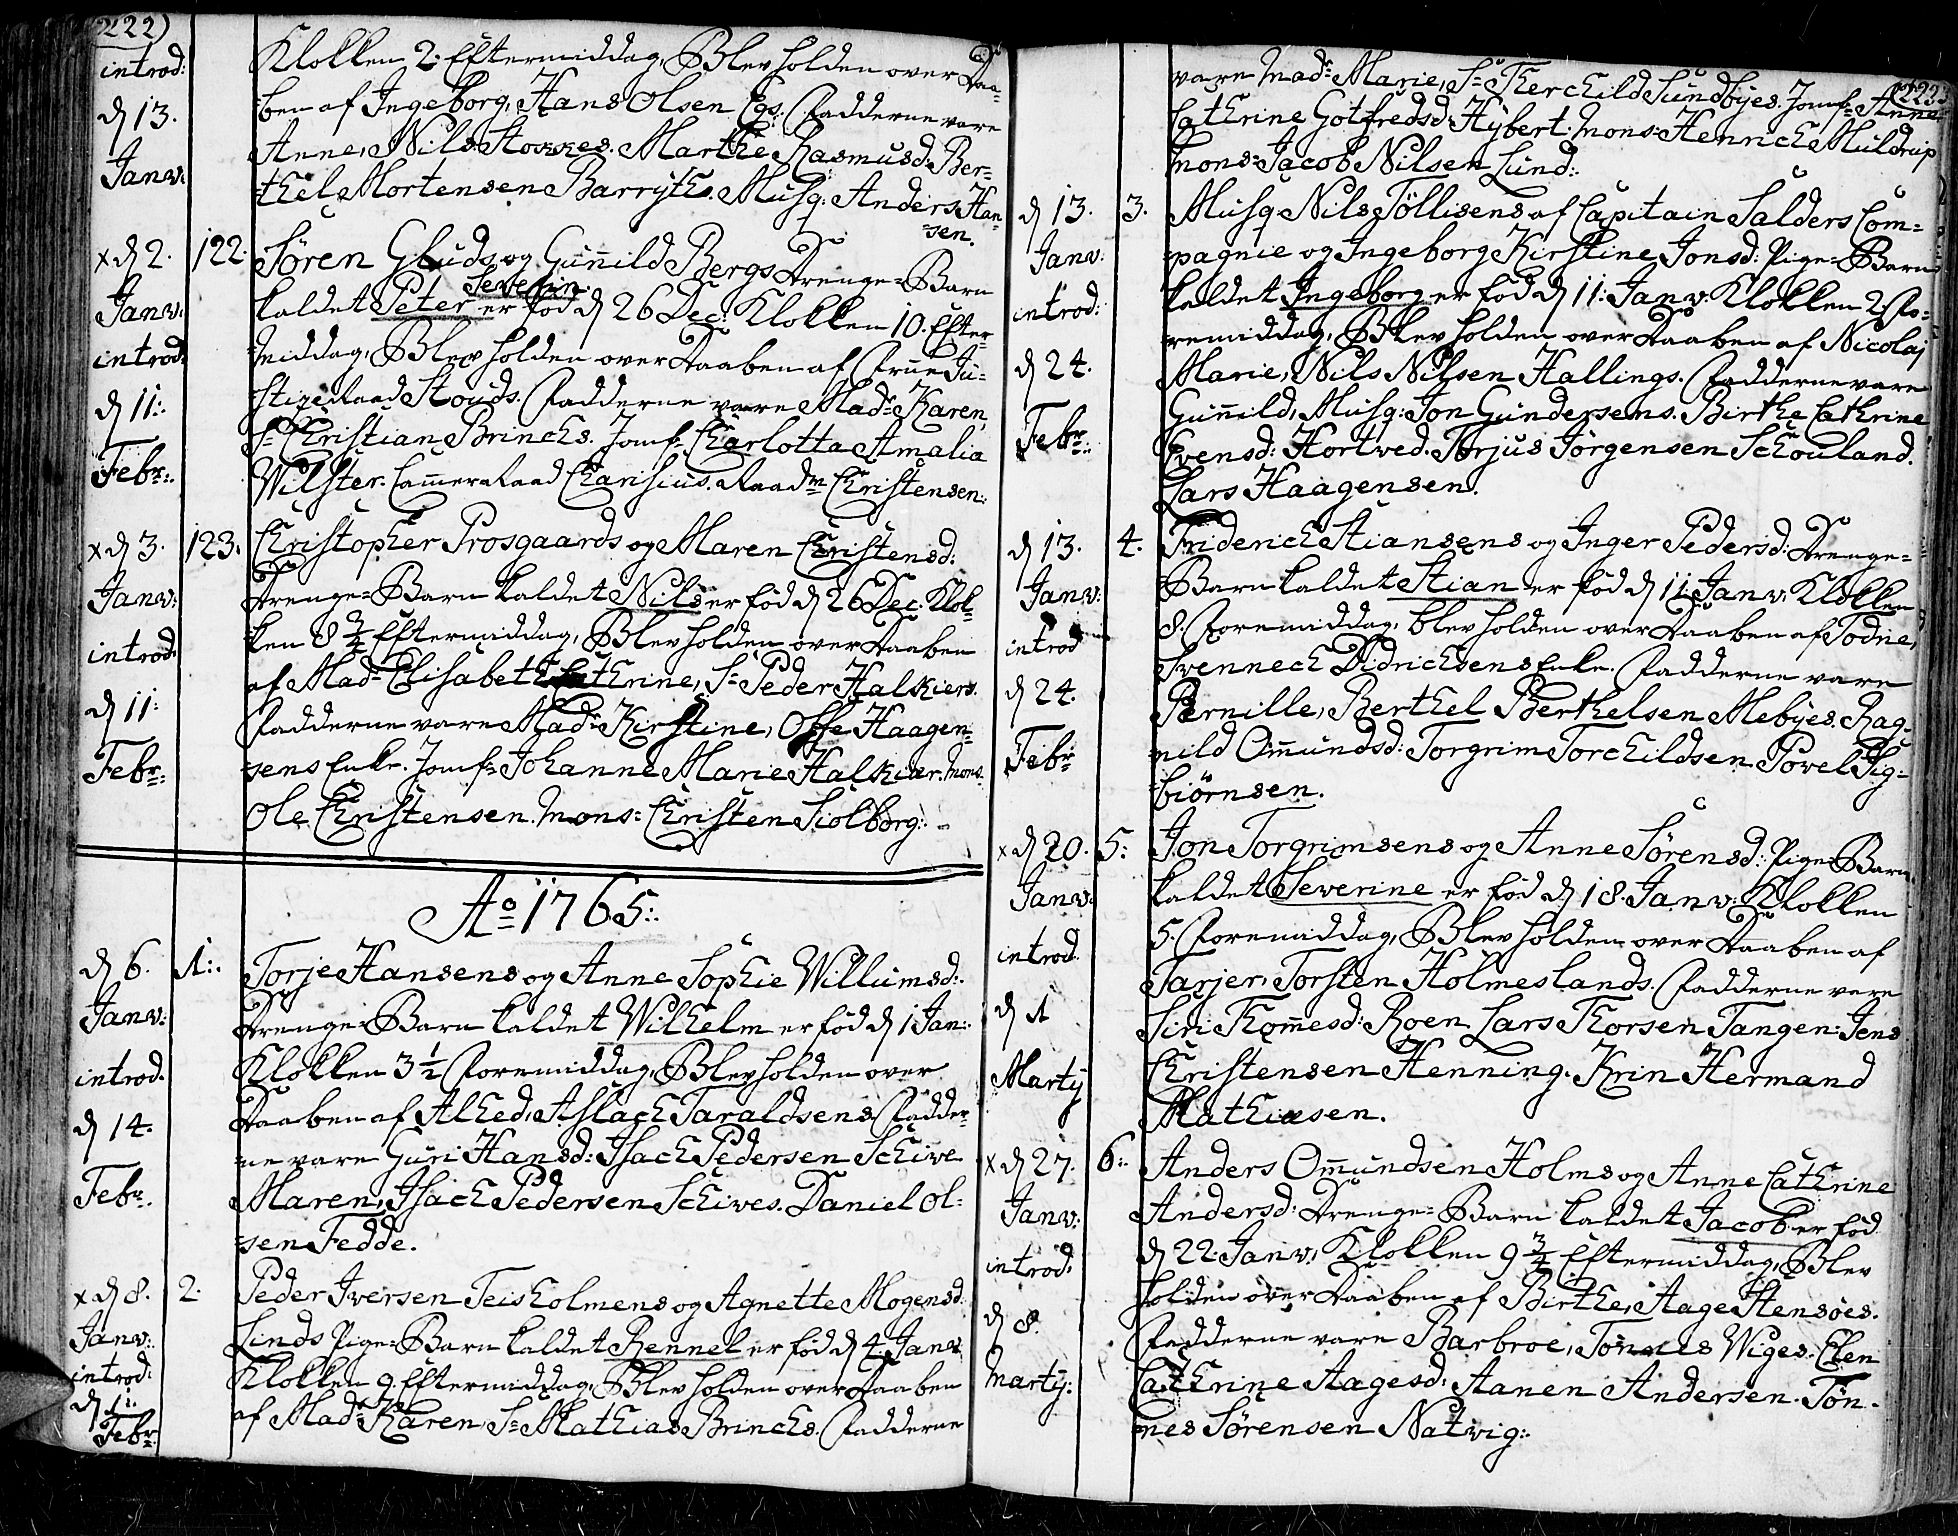 222)
introd:
d 13.
Janv:
Klokken 2. Eftermiddag, Blev holden over Daa-
ben af Ingeborg, Hans Olsen Egs. Fadderne vare
Anne, Nils Mortens. Marthe Rasmusd: Ber-
thel Mortensen Barryths. Musq: Anders Han-
sen.
x d 2. 122.
Janv:
introd.
d 11:
Febr:
Søren Gluds og Gunnild Bergs Drenge-Barn
Severin
kaldet Peter er fød d 26 Dec: Klokken 10. Efter-
middag, Blev holden over Daaben af Frue Ju-
stizeRaad Stouds. Fadderne vare Mad: Karen,
Sr Christian Brinchs. Jomf: Charlotta Amalia
Wilster. CammerRaad Charisius. Raadm Christensen:
x d 3. 123.
Janv:
introd.
d 11:
Febr:
Christopher Prosgaards og Maren Christensd:
Drenge-Barn kaldet Nils er fød d 26 Dec. Klok-
ken 8 3/4 Eftermiddag, Blev holden over Daaben
af Mad: Elisabeth Cathrine, Sr Peder Halkiers.
Fadderne vare Mad: Kirstine, Offe Haagen-
sens Enke. Jomf: Johanne Marie Halkier. Mons.
Ole Christensen. Mons: Christen Siolborg:
Ao 1765:
d 6. 1:.
Janv:
introd.
d 14.
Febr.
Torje Hansens og Anne Sophie Willumsd:
Drenge-Barn kaldet Wilhelm er fød d 1 Jan:
Klokken 3 1/2 Foremiddag, Blev holden over
Daaben af Alhed, Aslach Taraldsens. Fadder-
ne vare Guri Hansd: Isach Pedersen Schive
Maren, Isach Pedersen Schives. Daniel Ol-
sen Fedde.
x d 8. 2.
Janv:
introd:
d 11:
Febr:
Peder Iversen Teisholmens og Agnette Mogensd:
Linds Pige-Barn kaldet Rennel er fød d 4 Janv.
Klokken 9. Eftermiddag, Blev holden over Daaben
af Mad: Karen, Sr Mathias Brinchs. Fadderne
223
vare Mad: Marie, Sr Therchild Sundbyes. Jomf: Anne
Cathrine Gotfredsd: Hybert: Mons: Henrich Muldrup
Mons: Jacob Nilsen Lund:
d 13. 3.
Janv:
introd:
d 24.
Febr:
Musq Nils Töllisens af Capitain Salders Com-
pagnie og Ingeborg Kirstine Jonsd: Pige-Barn
kaldet Ingeborg er fød d 11: Janv: Klokken 2 Fo-
remiddag, Blev holden over Daaben af Nicolaj
Marie, Nils Nilsen Hallings. Fadderne vare
Gunnild, Musq: Jon Gundersens. Birthe Cathrine
Svensd: Hortved. Torjus Jörgensen Schouland.
Lars Haagensen.
d 13. 4.
Janv:
introd
d 24.
Febr
Friderich Stiansens og Inger Pedersd: Drenge-
Barn kaldet Stian er fød d 11 Janv: Klokken
8. Foremiddag, blev holden over Daaben af Todne,
Svennech Didrichsens Enke. Fadderne vare
Pernille, Berthel Berthelsen Mebyes. Rag-
nild Omundsd: Torgrim Torchildsen. Povel Sig-
biörnsen.
x d 20. 5:
Janv:
introd.
d 1
Martij
Jon Torgrimsens og Anne Sørensd: Pige-Barn
kaldet Severine er fød d 18. Janv: Klokken
5. Foremiddag, Blev holden over Daaben af
Tarjer, Torsten Holmeslands. Fadderne vare
Siri Thommesd: Roen. Lars Thorsen Tangen. Jens
Christensen Henning. Krin Hermand
Mathiasen.
x d 27. 6:
Janv:
introd.
d 8.
Martij:
Anders Omundsen Holms og Anne Cathrine
Andersd: Drenge-Barn kaldet Jacob er fød
d 22. Janv: Klokken 9 3/4 Eftermiddag, Blev
holden over Daaben af Birthe, Aage Stensøes.
Fadderne vare Barbroe, Tönnes Wiges. Elen
Cathrine Aagesd: Aanen Andersen. Tön-
nes Sørensen Natvig: